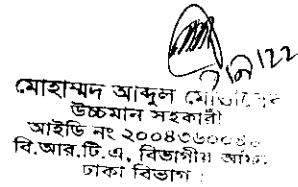 ৭/৯/২২
মোহাম্মদ আব্দুল
উচ্চমান সহকারী
আইডি নং ২০০৪৩৬০০
বি.আর.টি.এ, বিভাগীয় অফিস
ঢাকা বিভাগ।